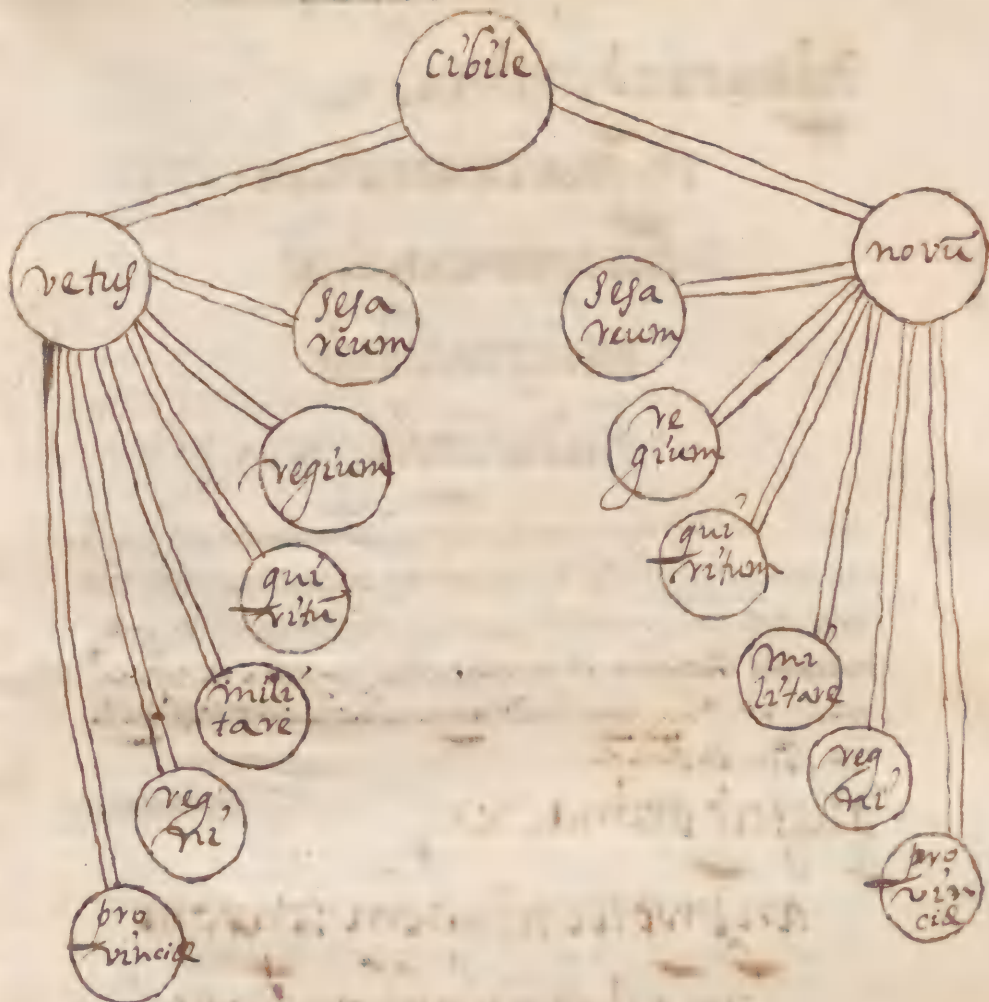 cibile
vetus
novū
sesa
reum
regium
qui
ritū
mili
tare
reg
ni
pro
vinciæ
sesa
reum
re
gium
qui
ritum
mi
litare
reg
ni
pro
vin
ciæ